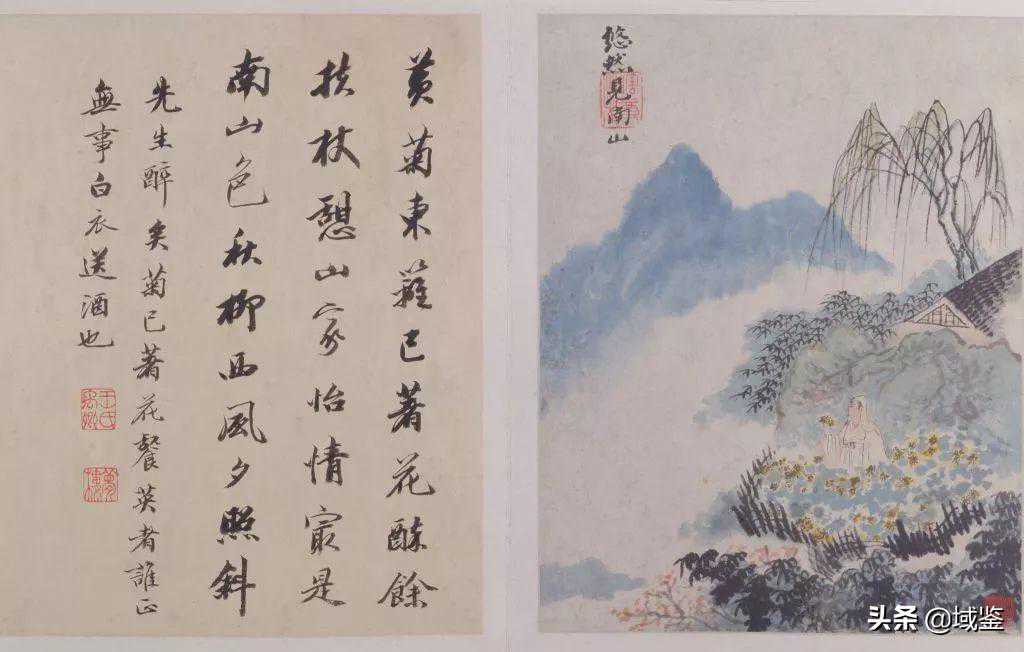 悠然見南山
黃菊東籬已著花餘
扶杖憩山家怡情寂是
南山色秋柳西風夕照斜
先生醉矣菊已著花餐英者誰正
無事白衣送酒也
王氏禹卿
头条 @域鉴